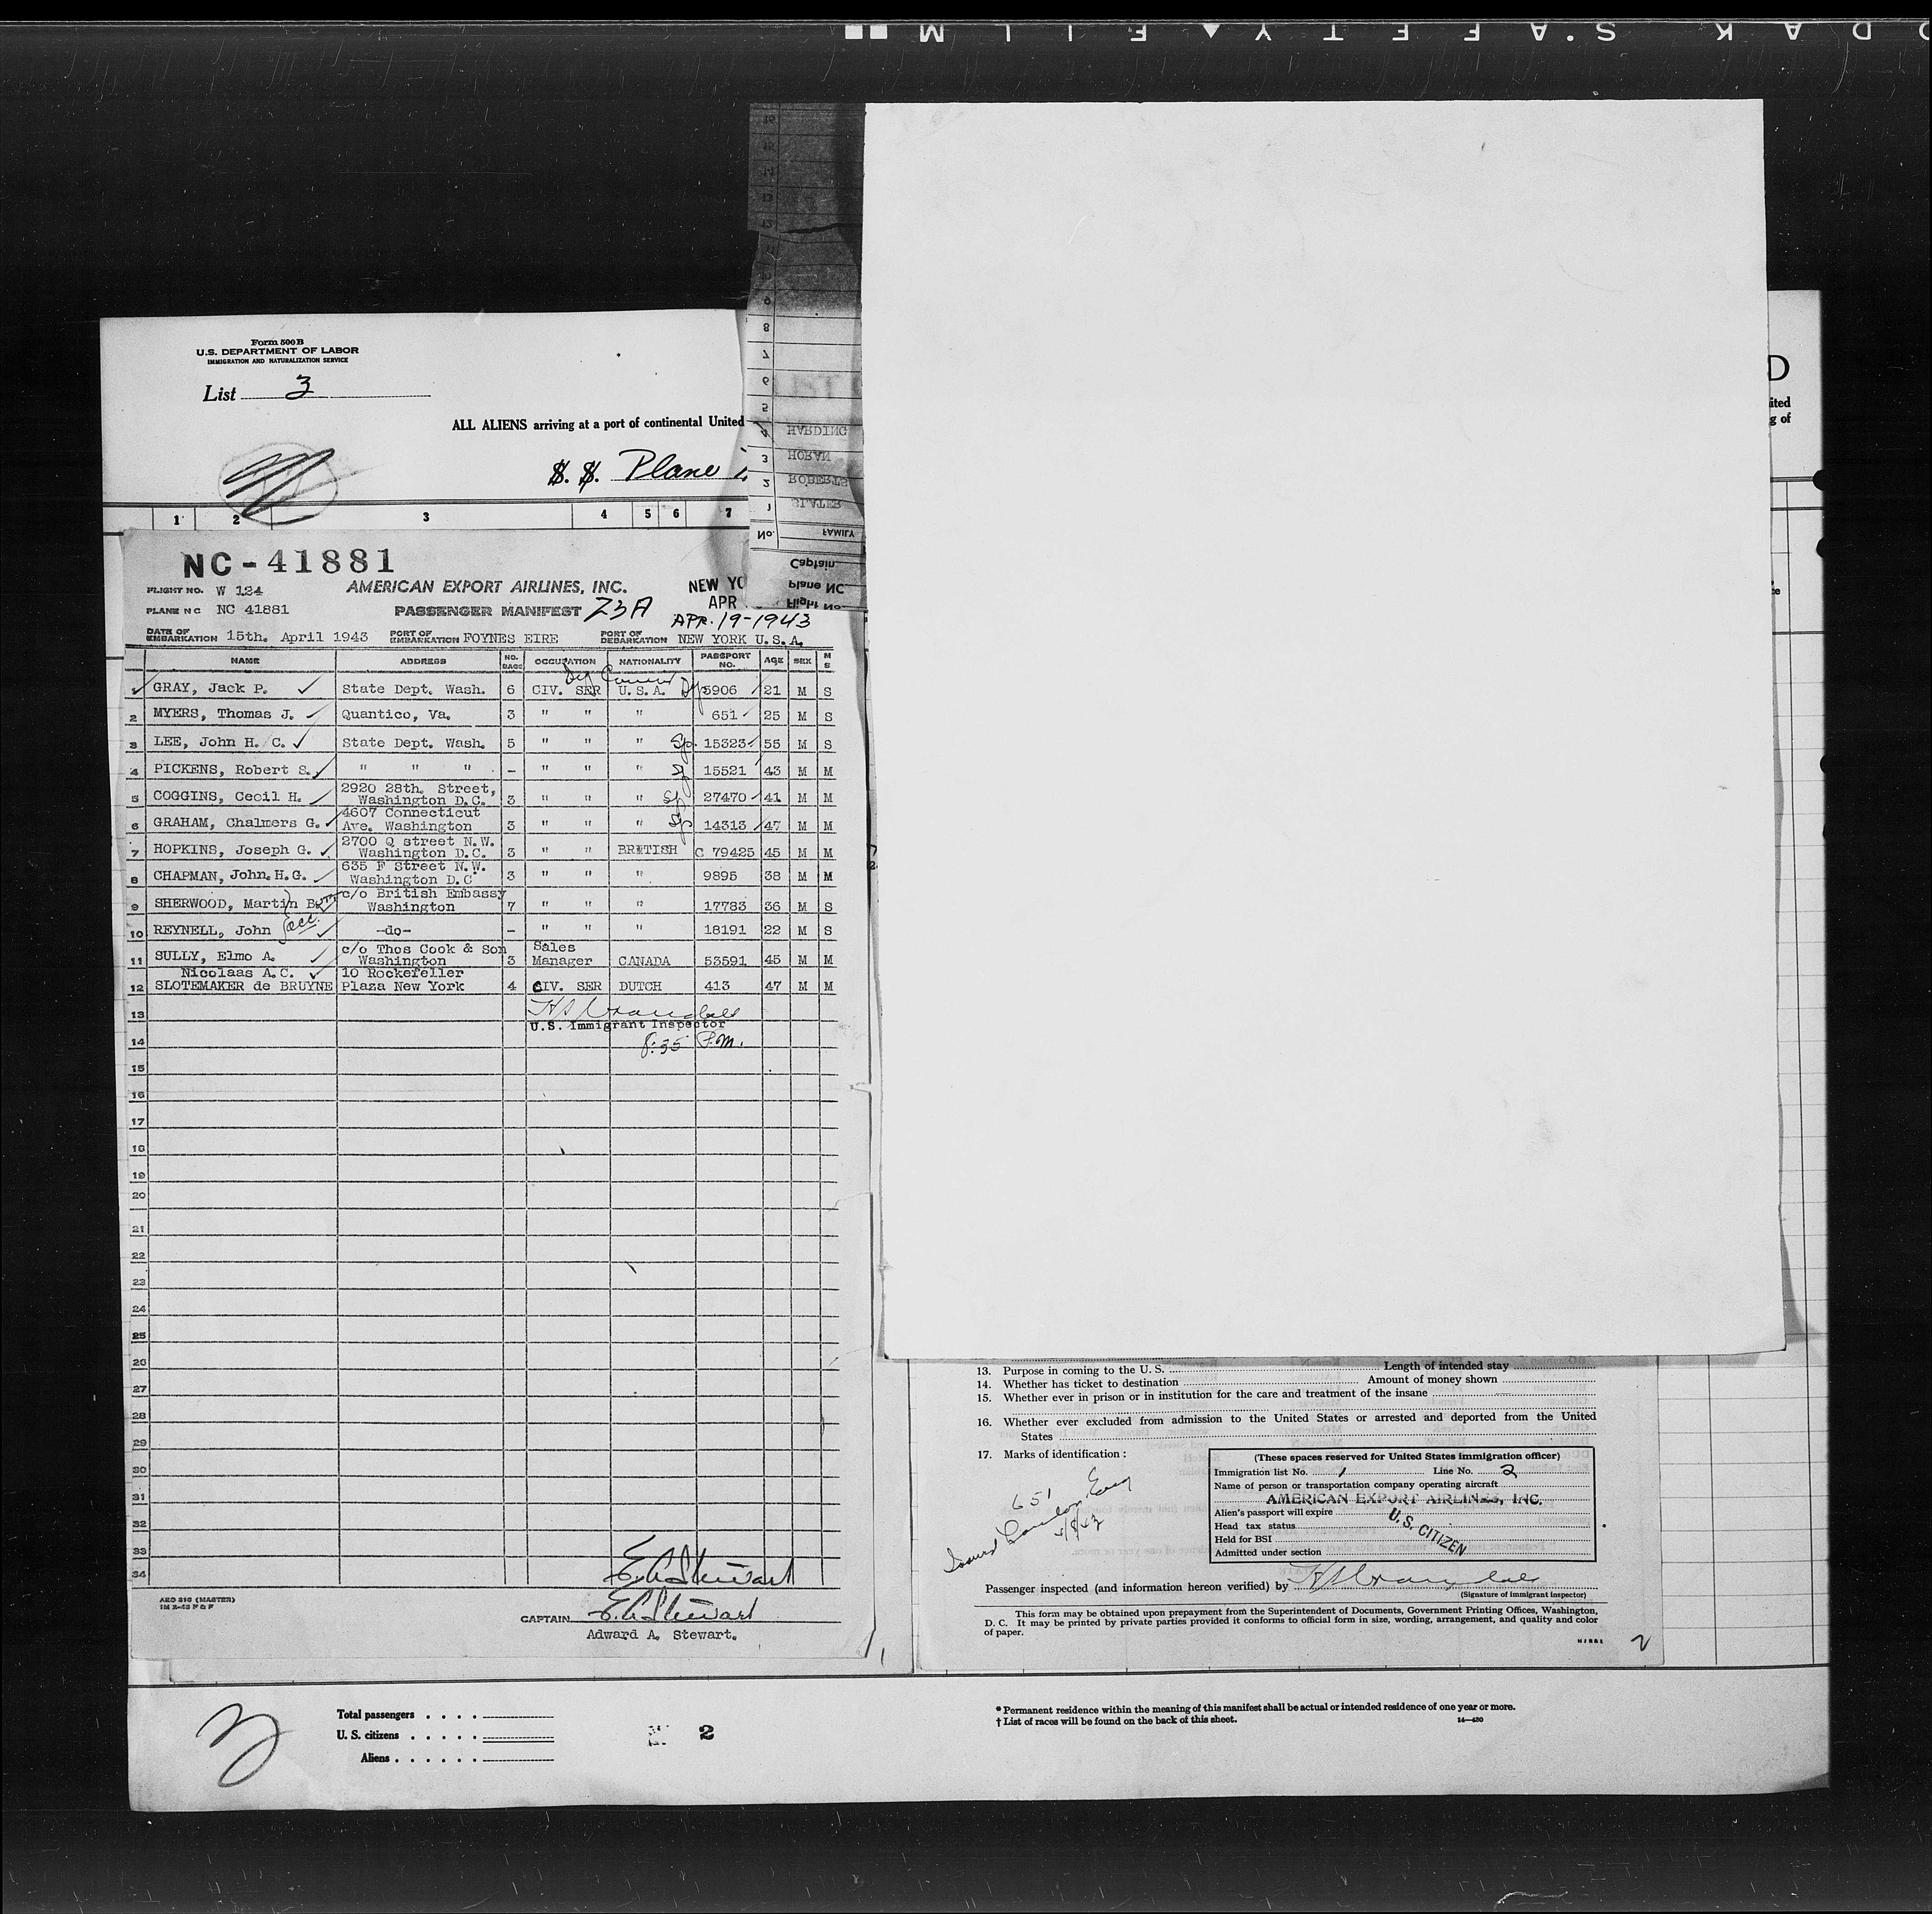 KODAK SAFETY FILM
Form 500B
U.S. DEPARTMENT OF LABOR
IMMIGRATION AND NATURALIZATION SERVICE
List 3
ALL ALIENS arriving at a port of continental United
S. S. Plane
1 2 3 4 5 6 7
NC-41881
FLIGHT NO. W 124 AMERICAN EXPORT AIRLINES, INC. NEW YO
PLANE NC NC 41881 PASSENGER MANIFEST 23A APR
APR. 19-1943
DATE OF EMBARKATION 15th. April 1943 PORT OF EMBARKATION FOYNES EIRE PORT OF DEBARKATION NEW YORK U.S.A.
NAME ADDRESS NO. BAGS OCCUPATION NATIONALITY PASSPORT NO. AGE SEX M S
GRAY, Jack P. State Dept. Wash. 6 CIV. SER U.S.A. 5906 21 M S
2 MYERS, Thomas J. Quantico, Va. 3 " " " 651 25 M S
3 LEE, John H. C. State Dept. Wash. 5 " " " Sp. 15323 55 M S
4 PICKENS, Robert S. " " " - " " " Sp 15521 43 M M
5 COGGINS, Cecil H. 2920 28th. Street, Washington D.C. 3 " " " Sp 27470 41 M M
6 GRAHAM, Chalmers G. 4607 Connecticut Ave. Washington 3 " " " Sp 14313 47 M M
7 HOPKINS, Joseph G. 2700 Q street N.W. Washington D.C. 3 " " BRITISH C 79425 45 M M
8 CHAPMAN, John.H.G. 635 F Street N.W. Washington D.C 3 " " " 9895 38 M M
9 SHERWOOD, Martin B. c/o British Embassy Washington 7 " " " 17783 36 M S
10 REYNELL, John -do- - " " " 18191 22 M S
11 SULLY, Elmo A. c/o Thos Cook & Son Washington 3 Sales Manager CANADA 53591 45 M M
12 Nicolaas A.C. SLOTEMAKER de BRUYNE 10 Rockefeller Plaza New York 4 CIV. SER DUTCH 413 47 M M
13
U.S. Immigrant Inspector
14 8:35 P.M.
15
16
17
18
19
20
21
22
23
24
25
26
27
28
29
30
31
32
33 E.A. Stewart
34
AEO 310 (MASTER)
CAPTAIN E.A. Stewart
Adward A. Stewart.
Total passengers
U. S. citizens
Aliens
3
2
16
15
14
13
12
9
8
7
6
5
4 HARDING
3 HORAN
2 ROBERTS
1
No. FAMILY
Captain
Plane NC
Flight No.
D
ited
g of
13. Purpose in coming to the U. S. Length of intended stay
14. Whether has ticket to destination Amount of money shown
15. Whether ever in prison or in institution for the care and treatment of the insane
16. Whether ever excluded from admission to the United States or arrested and deported from the United
States
17. Marks of identification:
651
Issued London, Eng
(These spaces reserved for United States immigration officer)
Immigration list No. 1 Line No. 2
Name of person or transportation company operating aircraft
AMERICAN EXPORT AIRLINES, INC.
Alien's passport will expire
Head tax status
U.S. CITIZEN
Held for BSI
Admitted under section
Passenger inspected (and information hereon verified) by
(Signature of immigrant inspector)
This form may be obtained upon prepayment from the Superintendent of Documents, Government Printing Offices, Washington,
D. C. It may be printed by private parties provided it conforms to official form in size, wording, arrangement, and quality and color
of paper.
2
* Permanent residence within the meaning of this manifest shall be actual or intended residence of one year or more.
† List of races will be found on the back of this sheet.
14—430